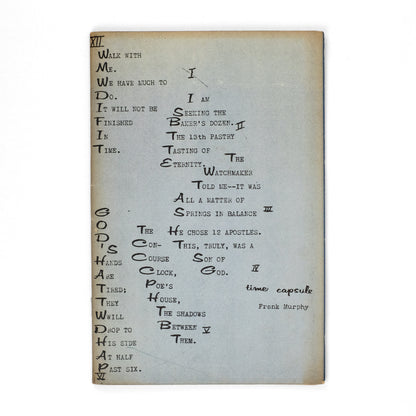 XII
WALK WITH
ME.
WE HAVE MUCH TO
DO.
IT WILL NOT BE
FINISHED
IN
TIME.
I
I AM
SEEKING THE
BAKER'S DOZEN. II
THE 13th PASTRY
TASTING OF
ETERNITY. THE
WATCHMAKER
TOLD ME--IT WAS
ALL A MATTER OF
SPRINGS IN BALANCE III
HE CHOSE 12 APOSTLES.
THIS, TRULY, WAS A
SON OF
GOD. IV
THE
CON-
COURSE
CLOCK,
POE'S
HOUSE,
THE SHADOWS
BETWEEN V
THEM.
GOD'S
HANDS
ARE
TIRED;
THEY
WWILL
DROP TO
HIS SIDE
AT HALF
PAST SIX.
VI
time capsule
Frank Murphy